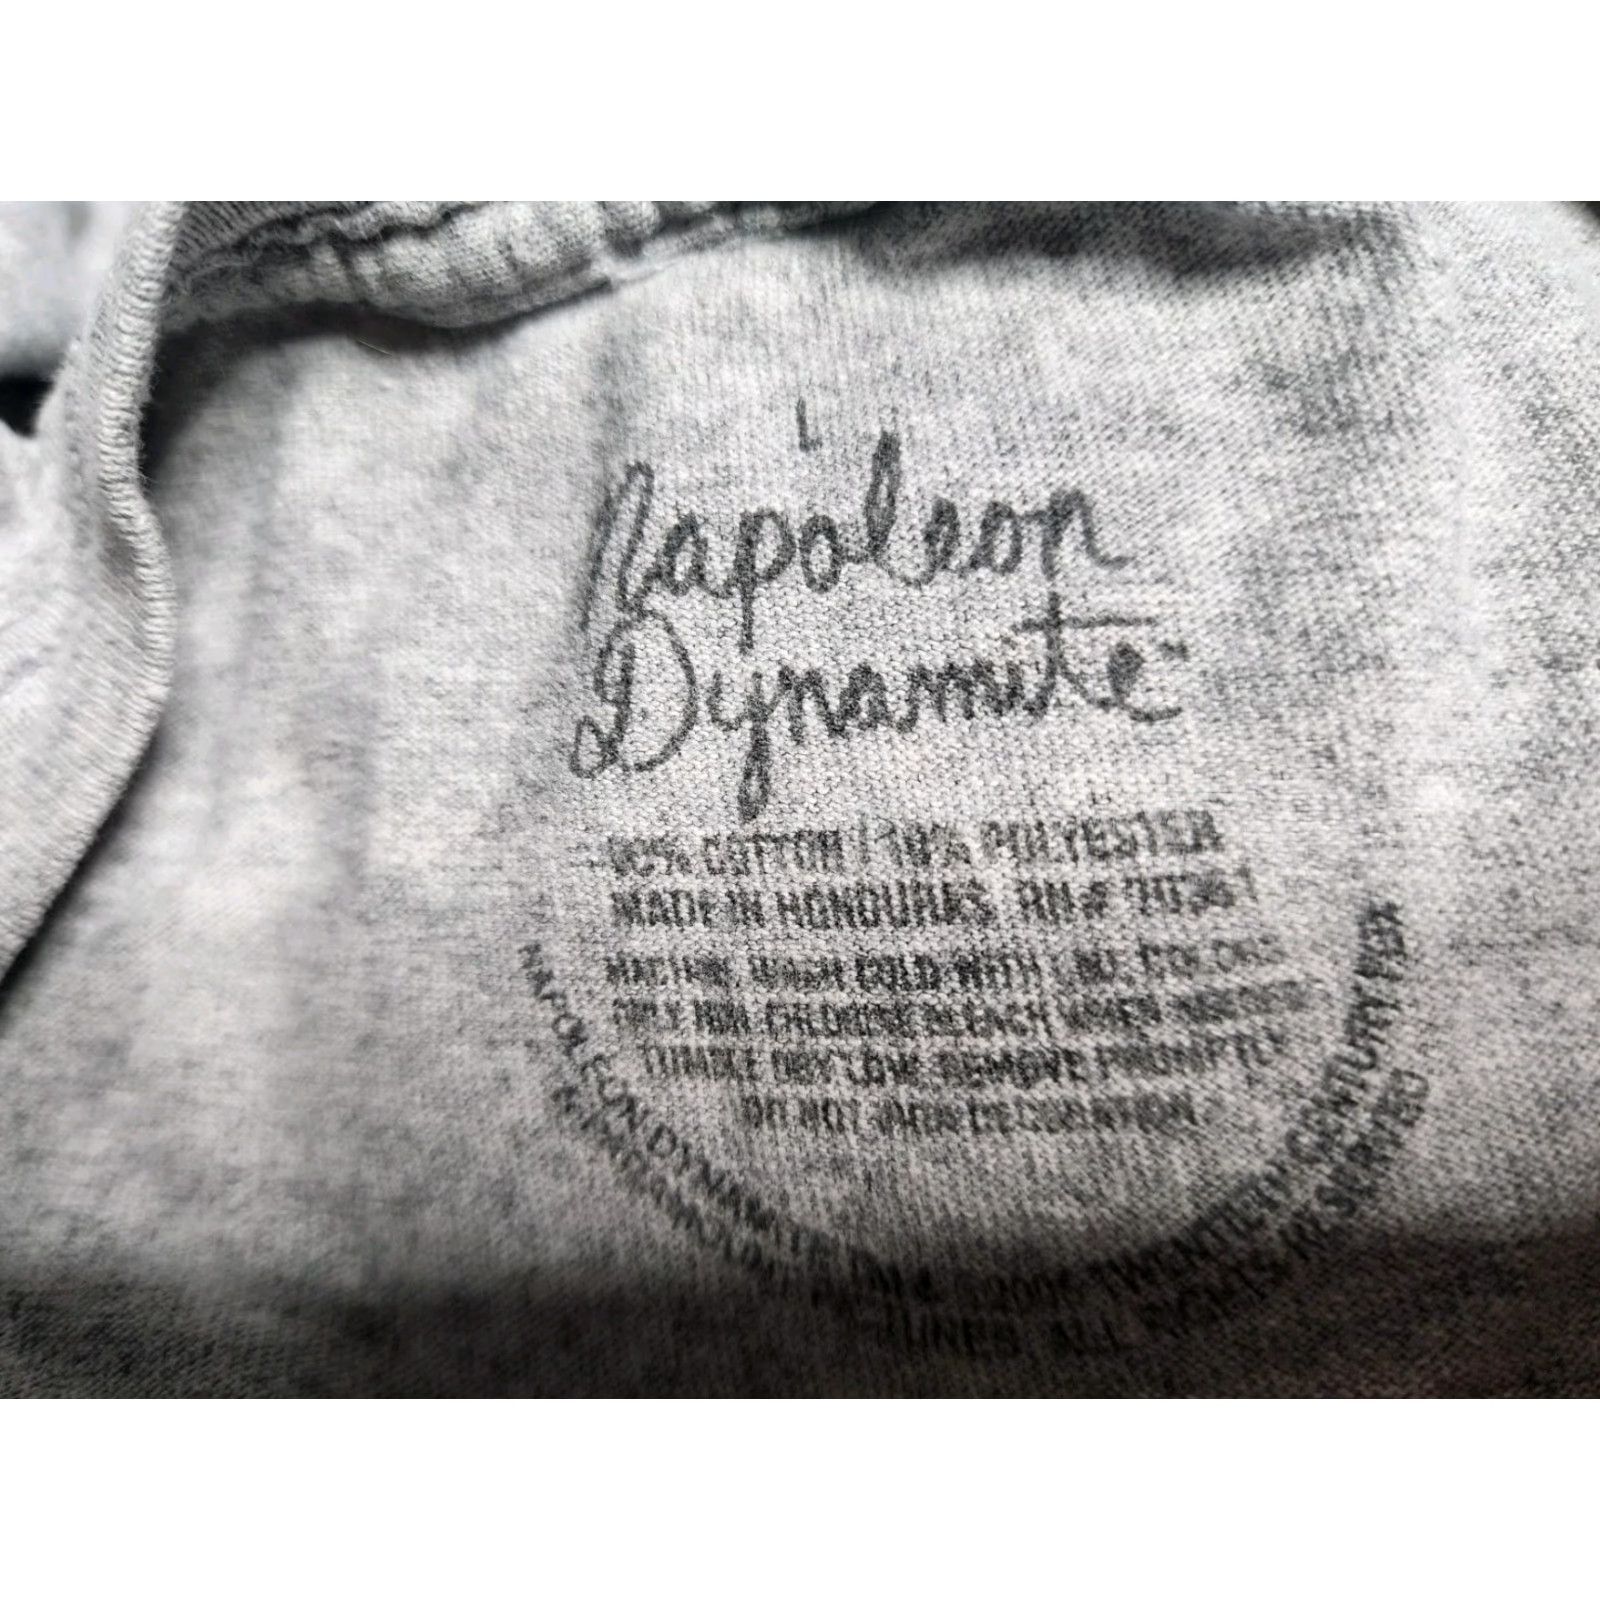 L
Napoleon
Dynamite™
90% COTTON | 10% POLYESTER
MADE IN HONDURAS RN#
MACHINE WASH COLD WITH LIKE COLORS
ONLY NON CHLORINE BLEACH WHEN NEEDED
TUMBLE DRY LOW REMOVE PROMPTLY
DO NOT IRON DECORATION
NAPOLEON DYNAMITE TWENTIETH CENTURY FOX
ALL RIGHTS RESERVED